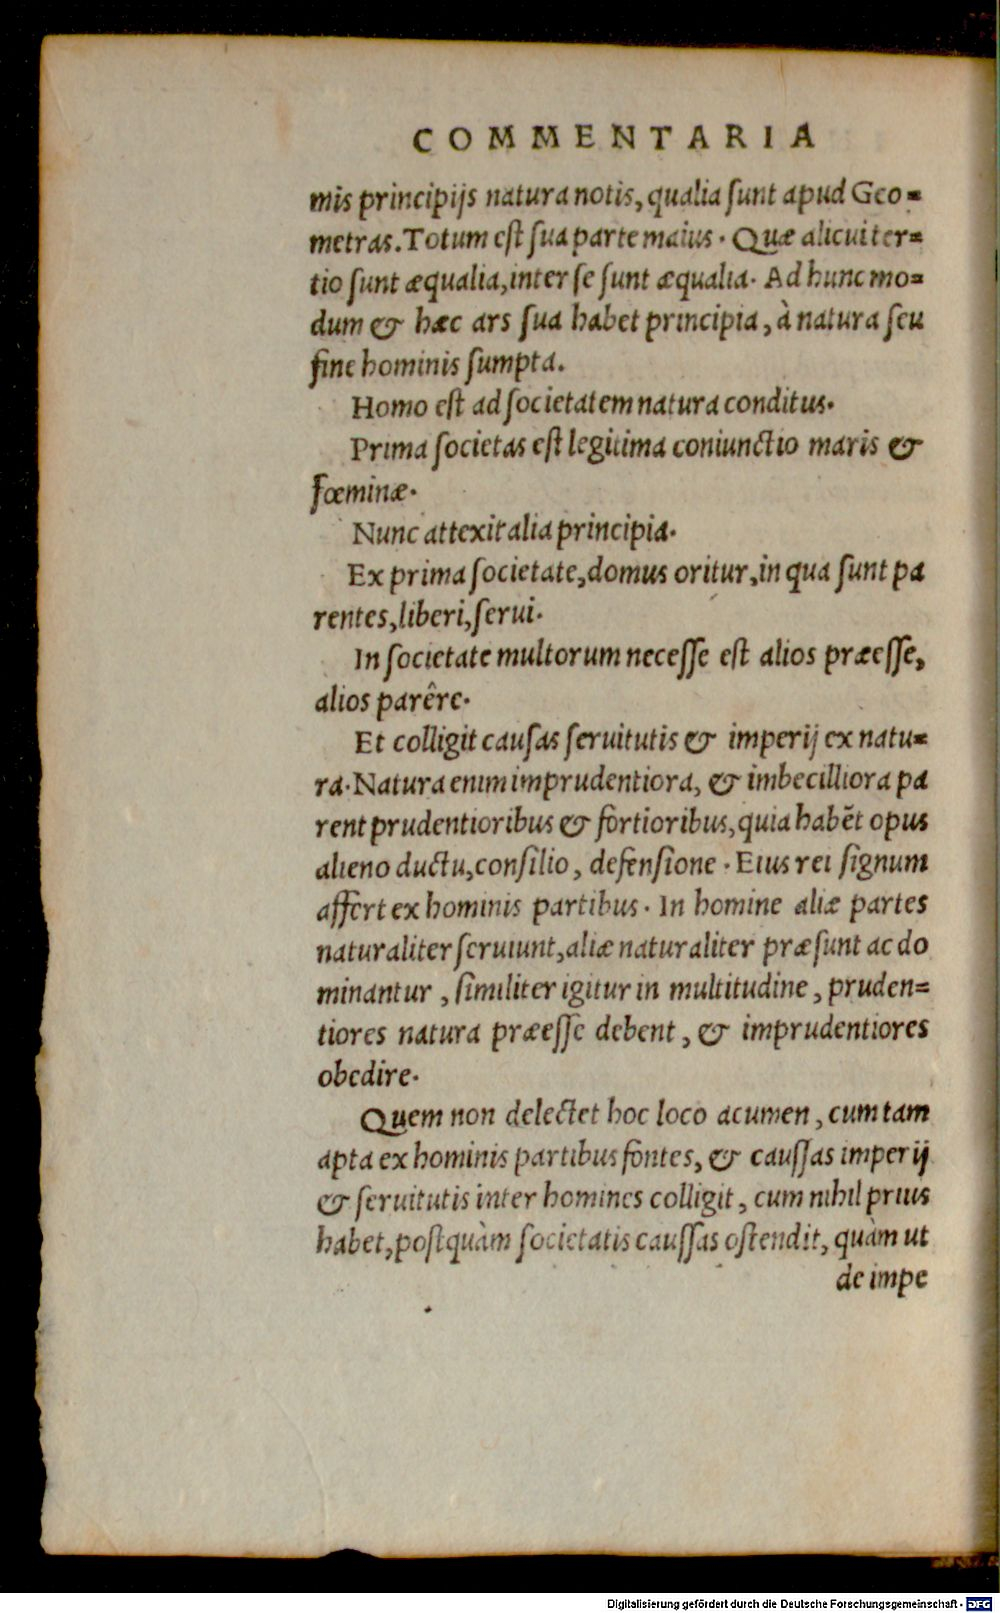 COMMENTARIA
mis principijs natura notis, qualia ſunt apud Geo=
metras. Totum eſt ſua parte maius. Quæ alicui ter=
tio ſunt æqualia, inter ſe ſunt æqualia. Ad hunc mo=
dum & hæc ars ſua habet principia, à natura ſeu
fine hominis ſumpta.
Homo eſt ad ſocietatem natura conditus.
Prima ſocietas eſt legitima coniunctio maris &
fœminæ.
Nunc attexit alia principia.
Ex prima ſocietate, domus oritur, in qua ſunt pa
rentes, liberi, ſerui.
In ſocietate multorum neceſſe eſt alios præeſſe,
alios parêre.
Et colligit cauſas ſeruitutis & imperij ex natu=
ra. Natura enim imprudentiora, & imbecilliora pa
rent prudentioribus & fortioribus, quia habēt opus
alieno ductu, conſilio, defenſione. Eius rei ſignum
affert ex hominis partibus. In homine aliæ partes
naturaliter ſeruiunt, aliæ naturaliter præſunt ac do
minantur, ſimiliter igitur in multitudine, pruden=
tiores natura præeſſe debent, & imprudentiores
obedire.
Quem non delectet hoc loco acumen, cum tam
apta ex hominis partibus fontes, & cauſſas imperij
& ſeruitutis inter homines colligit, cum nihil prius
habet, poſtquàm ſocietatis cauſſas oſtendit, quàm ut
de impe
Digitalisierung gefördert durch die Deutsche Forschungsgemeinschaft - DFG